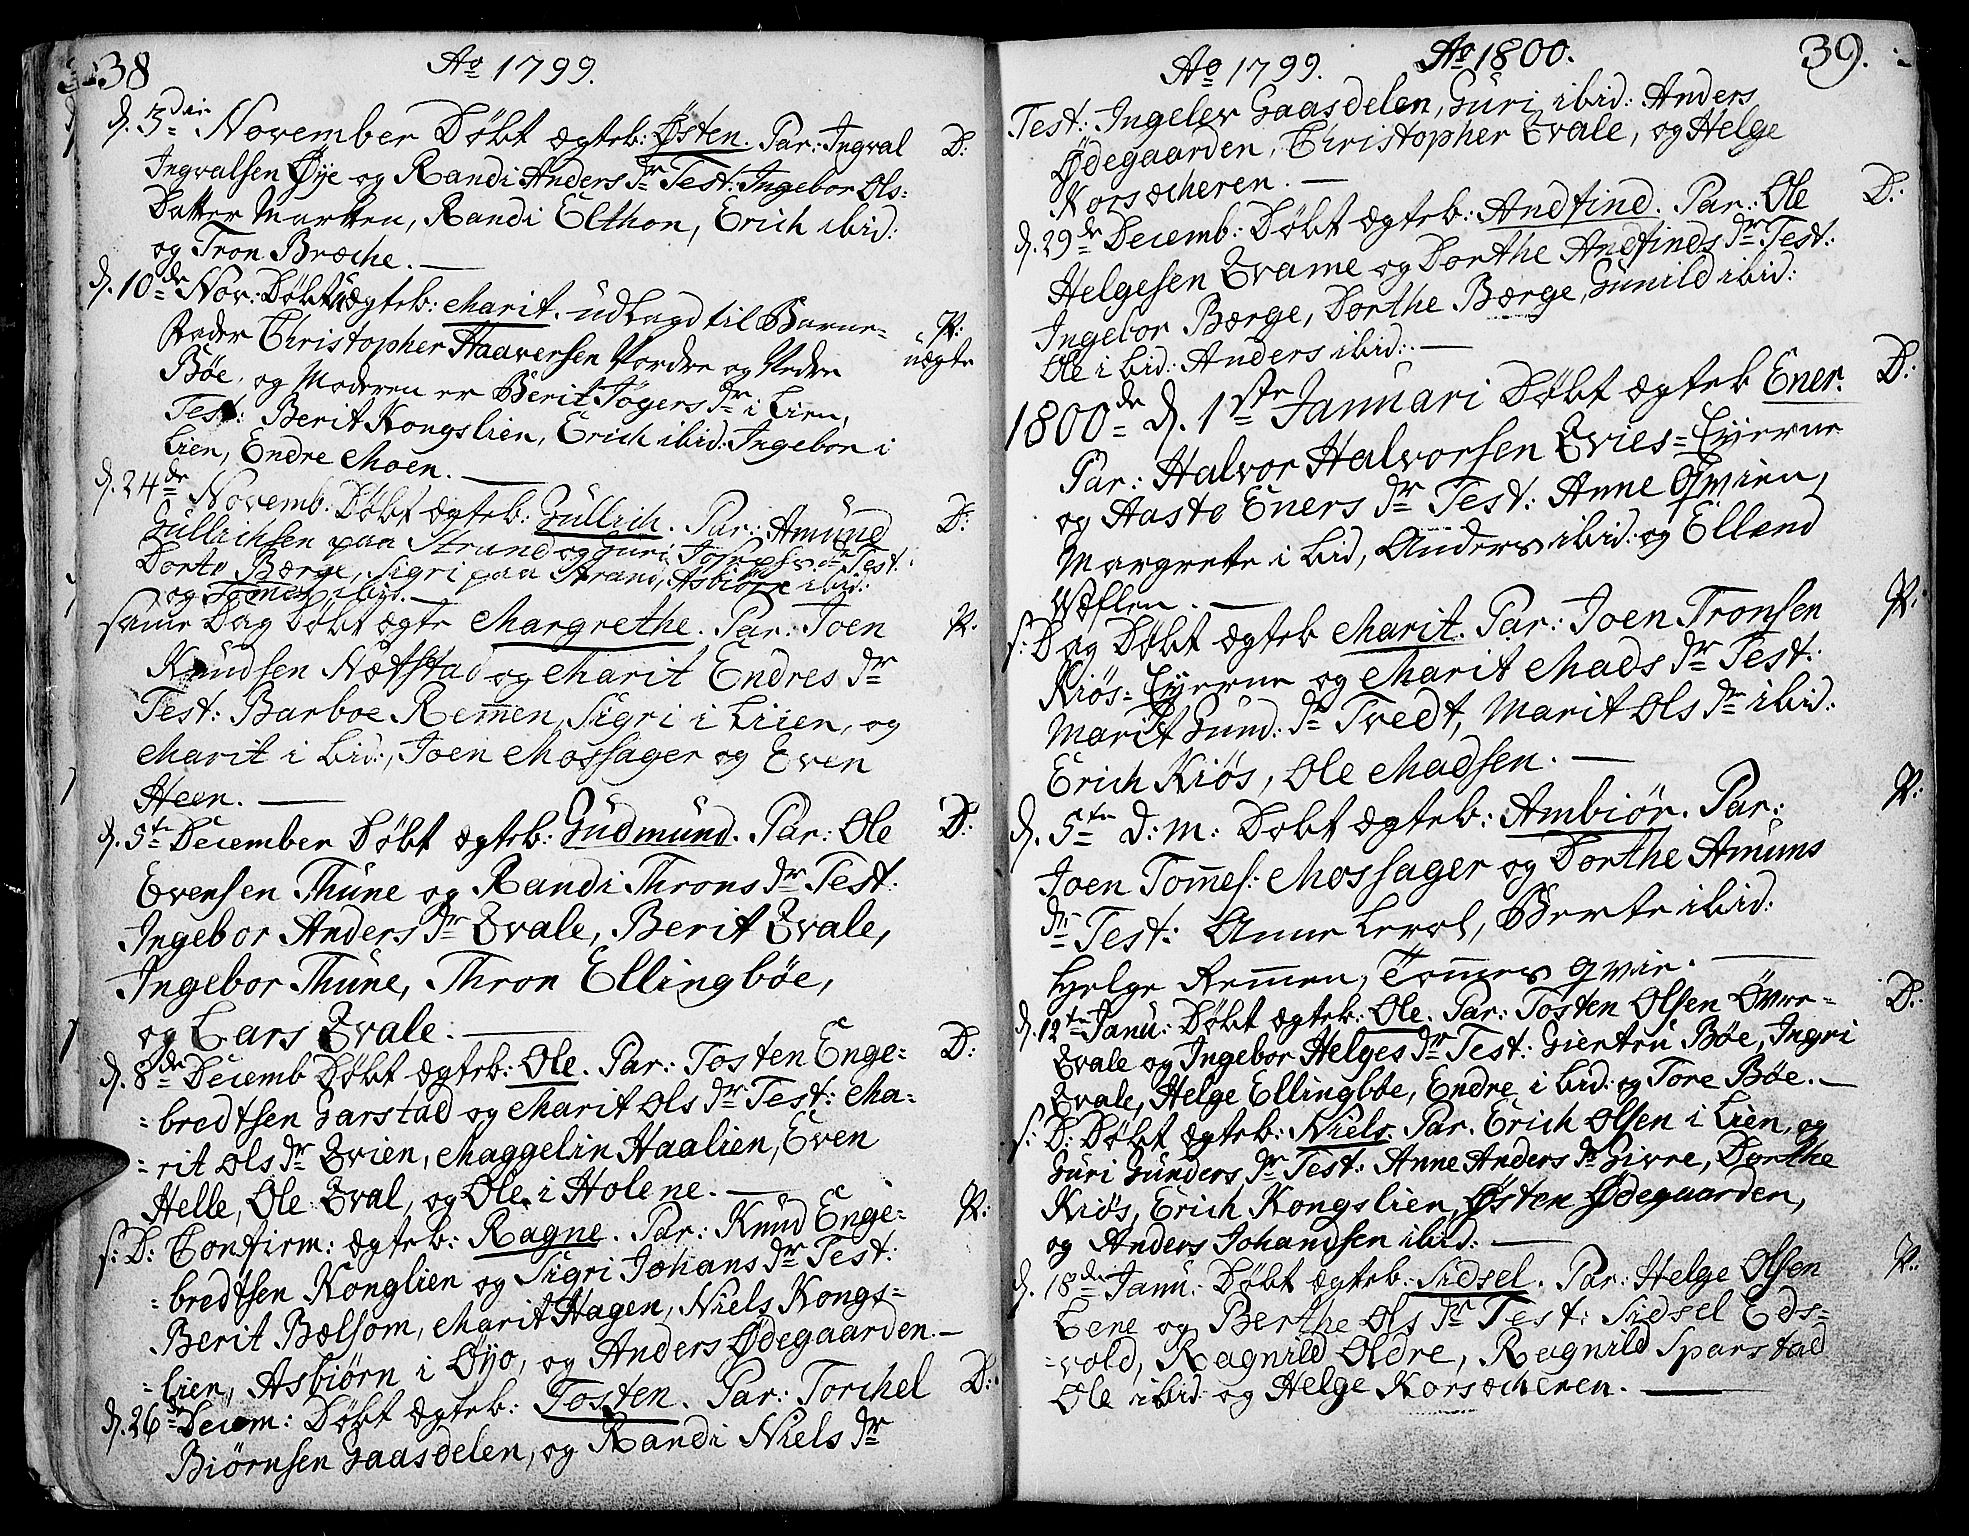 38
Ao 1799.
d. 3die November Døbt ægteb: Østen. Par: Ingval D:
Ingvalsen Øÿe og Randi Anders dr Test: Ingebor Ols-
Datter Marken, Randi Elthon, Erich ibid:
og Tron Bræche. —
d. 10de Nov: Døbt uægteb: Marit. udlagd til Barne- P:
Fader Christopher Haaversen Nordre og Nedre uægte
Bøe, og Moderen er Berit Tøgers dr i Lien,
Test: Berit Kongslien, Erich ibid: Ingebor i
Lien, Endre Moen. —
d. 24de Novemb. Døbt ægteb: Gullich. Par: Amund D:
Gullichsen paa Strand og Guri Josephs dr Test:
Dorte Bærge, Sigri paa Strand, Asbiørn ibid:
og Tomes ibid. —
Same Dag Døbt ægte Margrethe. Par: Joen P.
Knudsen Næstad og Marit Endres dr
Test: Barboe Remen, Sigri i Liien, og
Marit i bid:, Joen Mossager og Even
Heen. —
d. 5te December Døbt ægteb: Gudmund. Par: Ole D:
Evensen Thune og Randi Throns dr Test:
Ingebor Anders dr Qvale, Berit Qvale,
Ingebor Thune, Thron Ellingbøe,
og Lars Qvale. —
d. 8de Decemb Døbt ægteb: Ole. Par: Tosten Enge- D:
-bredtsen Garstad og Marit Ols dr Test: Ma-
-rit Ols dr Qvien, Maggelin Haalien, Even
Helle, Ole Qval, og Ole i Holene. —
s: D: Confirm: ægteb: Ragne. Par: Knud Enge- P:
-bredtsen Konglien og Sigri Johans dr Test:
Berit Bælsom, Marit Hagen, Niels Kongs-
-lien, Asbiørn i Øÿo, og Anders Ødegaarden. —
d. 26de Decem: Døbt ægteb: Tosten. Par: Torchel D:
Biørnsen Gaasdelen, og Randi Niels dr
Ao 1799. Ao 1800. 39.
Test: Ingelev Gaasdelen, Guri ibid: Anders
Ødegaarden, Christopher Qvale, og Helge
Korsæcheren. —
d. 29de Decemb: Døbt ægteb: Andfind. Par: Ole D:
Helgesen Qvame og Dorthe Andfinds dr Test:
Ingebor Bærge, Dorthe Bærge, Gunild ibid:
Ole i bid: Anders ibid: —
1800de d. 1ste Januari Døbt ægteb Ener. D:
Par: Halvor Halvorsen Qvies-Eyerne
og Aaste Eners dr Test: Anne Qvien,
Margrete i bid, Anders ibid: og Ellend
Wæflen. —
s: Dag Døbt ægteb Marit. Par: Joen Tronsen P.
Kiøs-Eyerne og Marit Mads dr Test:
Marit Gund: dr Tvedt, Marit Ols dr ibid:
Erich Kiøs, Ole Madsen. —
d. 5te D: M: Døbt ægteb: Ambiør. Par: P:
Joen Tomes: Mossager og Dorthe Amuns
dr Test: Anne Lerol, Berte ibid:
Helge Remen, Tomes Qvie. —
d. 12te Janu: Døbt ægteb: Ole. Par: Tosten Olsen Øvre- D:
Qvale og Ingebor Helges dr Test: Giertru Bøe, Ingri
Qvale, Helge Ellingbøe, Endre i bid: og Tore Bøe. —
s: D: Døbt ægteb: Niels. Par. Erich Olsen i Lien, og
Guri Gunders dr Test: Anne Anders dr Givre, Dorthe
Kiøs, Erich Kongslien, Østen Ødegaarden,
og Anders Johandsen ibid: —
d. 18de Janu: Døbt ægteb: Sidsel. Par: Helge Olsen P:
Lene og Berthe Ols dr Test: Sidsel Eds-
-vold, Ragnild Oldre, Ragnild Sparstad
Ole ibid: og Helge Korsæcheren. —